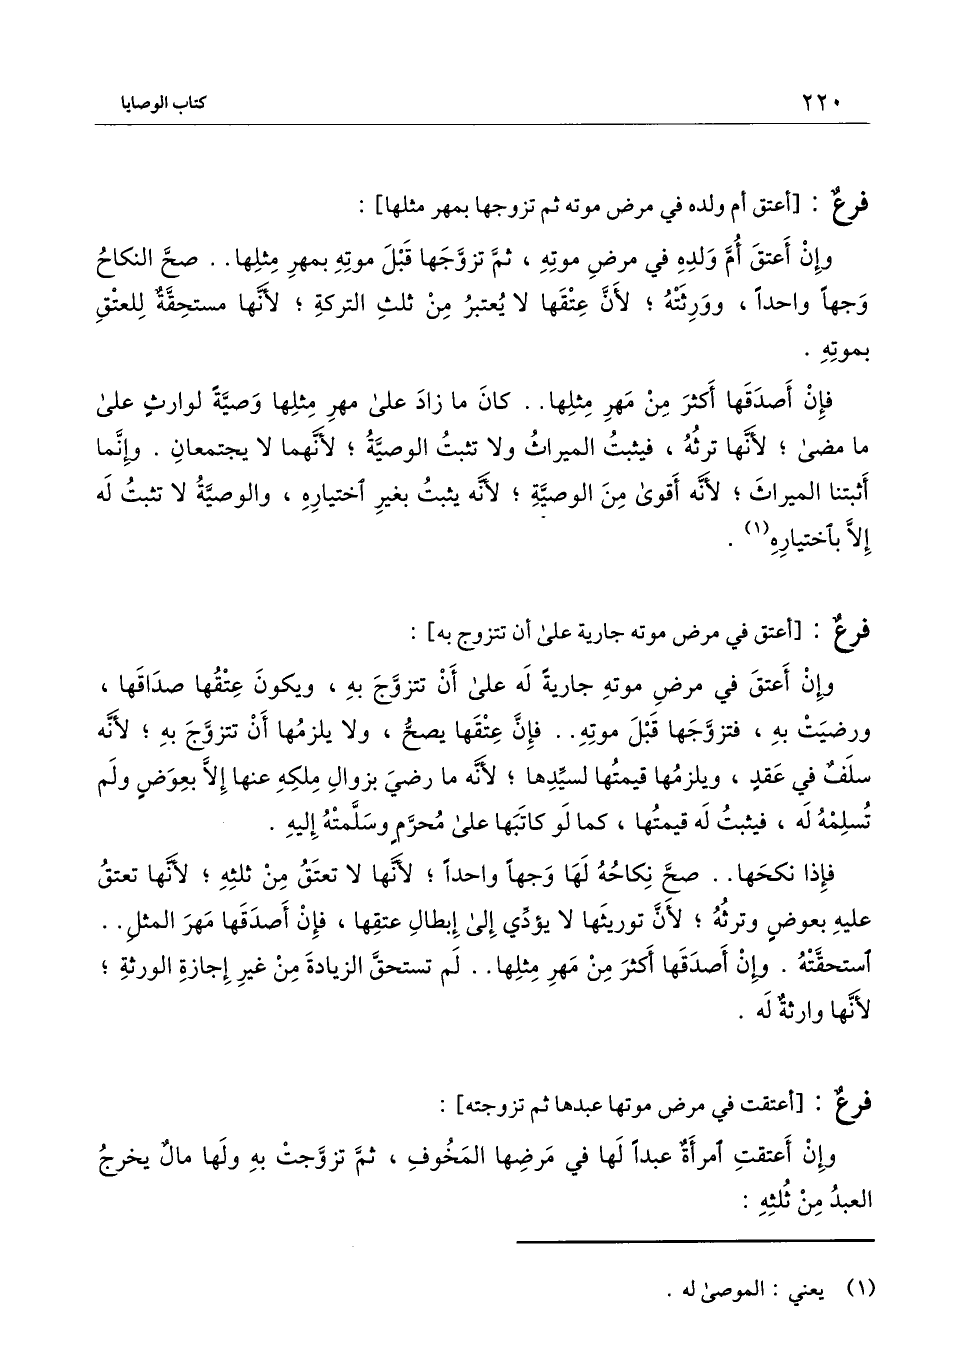 ٢٢٠ كتاب الوصايا
فرعٌ : [أعتق أم ولده في مرض موته ثم تزوجها بمهر مثلها] :
وإِنْ أَعتقَ أُمَّ وَلدِهِ في مرضِ موتِهِ ، ثمَّ تزوَّجَها قَبْلَ موتِهِ بمهرِ مثلِها. . صحَّ النكاحُ
وَجهاً واحداً ، ووَرِثَتْهُ ؛ لأَنَّ عِتْقَها لا يُعتبرُ مِنْ ثلثِ التركةِ ؛ لأَنَّها مستحِقَّةٌ لِلعتْقِ
بموتِهِ .
فإِنْ أَصدَقَها أَكثرَ مِنْ مَهرِ مِثلِها. . كانَ ما زادَ علىٰ مهرِ مِثلِها وَصيَّةً لوارثٍ علىٰ
ما مضىٰ ؛ لأَنَّها ترثُهُ ، فيثبتُ الميراثُ ولا تثبتُ الوصيَّةُ ؛ لأَنَّهما لا يجتمعانِ . وإِنَّما
أَثبتنا الميراثَ ؛ لأَنَّه أَقوىٰ مِنَ الوصيَّةِ ؛ لأَنَّه يثبتُ بغيرِ ٱختيارِهِ ، والوصيَّةُ لا تثبتُ لَه
إِلاَّ بٱختيارِهِ(١) .
فرعٌ : [أعتق في مرض موته جارية علىٰ أن تتزوج به] :
وإِنْ أَعتقَ في مرضِ موتهِ جاريةً لَه علىٰ أَنْ تتزوَّجَ بهِ ، ويكونَ عِتْقُها صدَاقَها ،
ورضيَتْ بهِ ، فتزوَّجَها قَبْلَ موتِهِ. . فإِنَّ عِتْقَها يصحُّ ، ولا يلزمُها أَنْ تتزوَّجَ بِهِ ؛ لأَنَّه
سلَفٌ في عَقدٍ ، ويلزمُها قيمتُها لسيِّدِها ؛ لأَنَّه ما رضيَ بزوالِ مِلكِهِ عنها إِلاَّ بعِوَضٍ ولَم
تُسلِمْهُ لَه ، فيثبتُ لَه قيمتُها ، كما لَو كاتبَها علىٰ مُحرَّمٍ وسَلَّمتْهُ إِليهِ .
فإِذا نكحَها. . صحَّ نِكاحُهُ لَهَا وَجهاً واحداً ؛ لأَنَّها لا تعتَقُ مِنْ ثلثِهِ ؛ لأَنَّها تعتقُ
عليهِ بعوضٍ وترثُهُ ؛ لأَنَّ توريثَها لا يؤدِّي إِلىٰ إِبطالِ عتقِها ، فإِنْ أَصدَقَها مَهرَ المثلِ. .
ٱستحقَّتْهُ . وإِنْ أَصدَقَها أَكثرَ مِنْ مَهرِ مِثلِها. . لَم تستحقَّ الزيادةَ مِنْ غيرِ إِجازةِ الورثةِ ؛
لأَنَّها وارثةٌ لَه .
فرعٌ : [أعتقت في مرض موتها عبدها ثم تزوجته] :
وإِنْ أَعتقتِ ٱمرأَةٌ عبداً لَها في مَرضِها المَخُوفِ ، ثمَّ تزوَّجتْ بهِ ولَها مالٌ يخرجُ
العبدُ مِنْ ثُلثِهِ :
(١) يعني : الموصىٰ له .